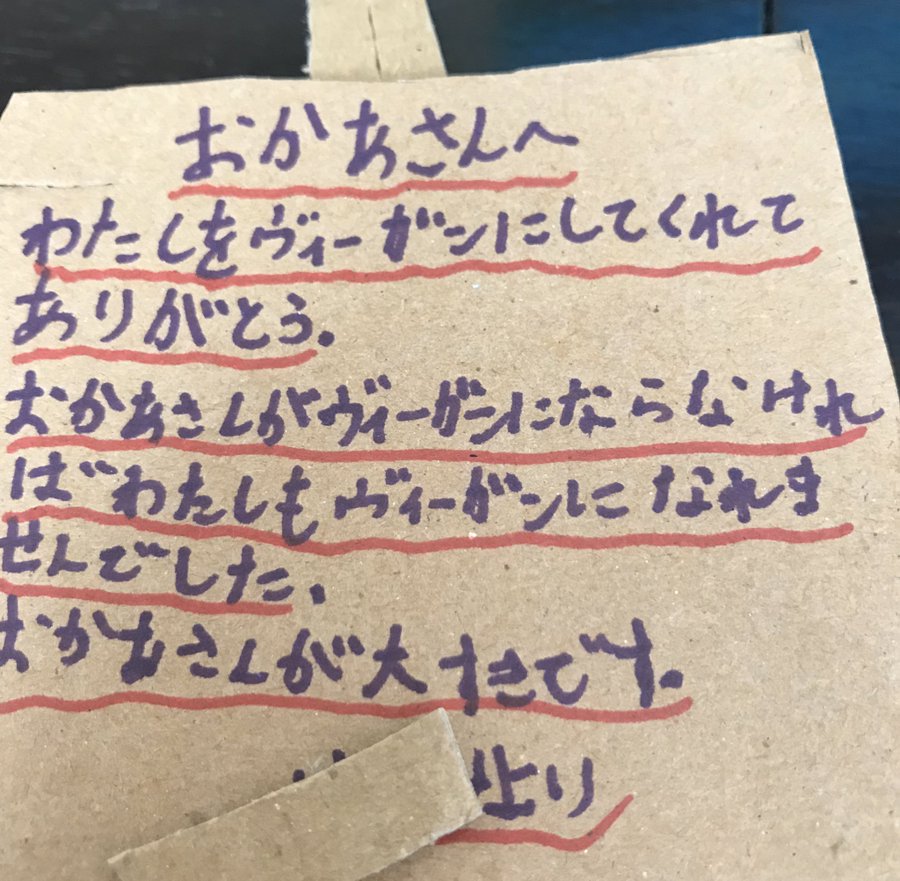 おかあさんへ
わたしをヴィーガンにしてくれて
ありがとう.
おかあさんがヴィーガンにならなけれ
ばわたしもヴィーガンになれま
せんでした.
おかあさんが大すきです.
より